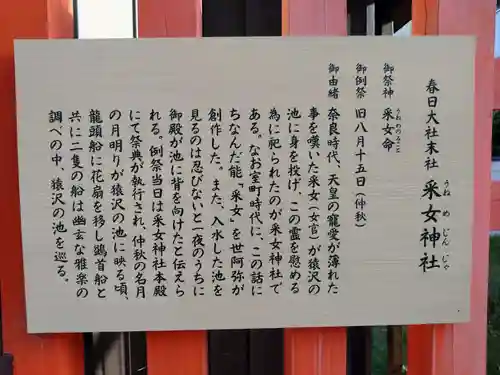 春日大社末社 采女神社
うねめじんじゃ
御祭神 采女命
うねめのみこと
御例祭 旧八月十五日（仲秋）
御由緒 奈良時代、天皇の寵愛が薄れた
事を嘆いた采女（女官）が猿沢の
池に身を投げ、この霊を慰める
為に祀られたのが采女神社で
ある。なお室町時代に、この話に
ちなんだ能「采女」を世阿弥が
創作した。また、入水した池を
見るのは忍びないと一夜のうちに
御殿が池に背を向けたと伝えら
れる。例祭当日は采女神社本殿
にて祭典が執行され、仲秋の名月
の月明りが猿沢の池に映る頃、
龍頭船に花扇を移し鷁首船と
共に二隻の船は幽玄な雅楽の
調べの中、猿沢の池を巡る。